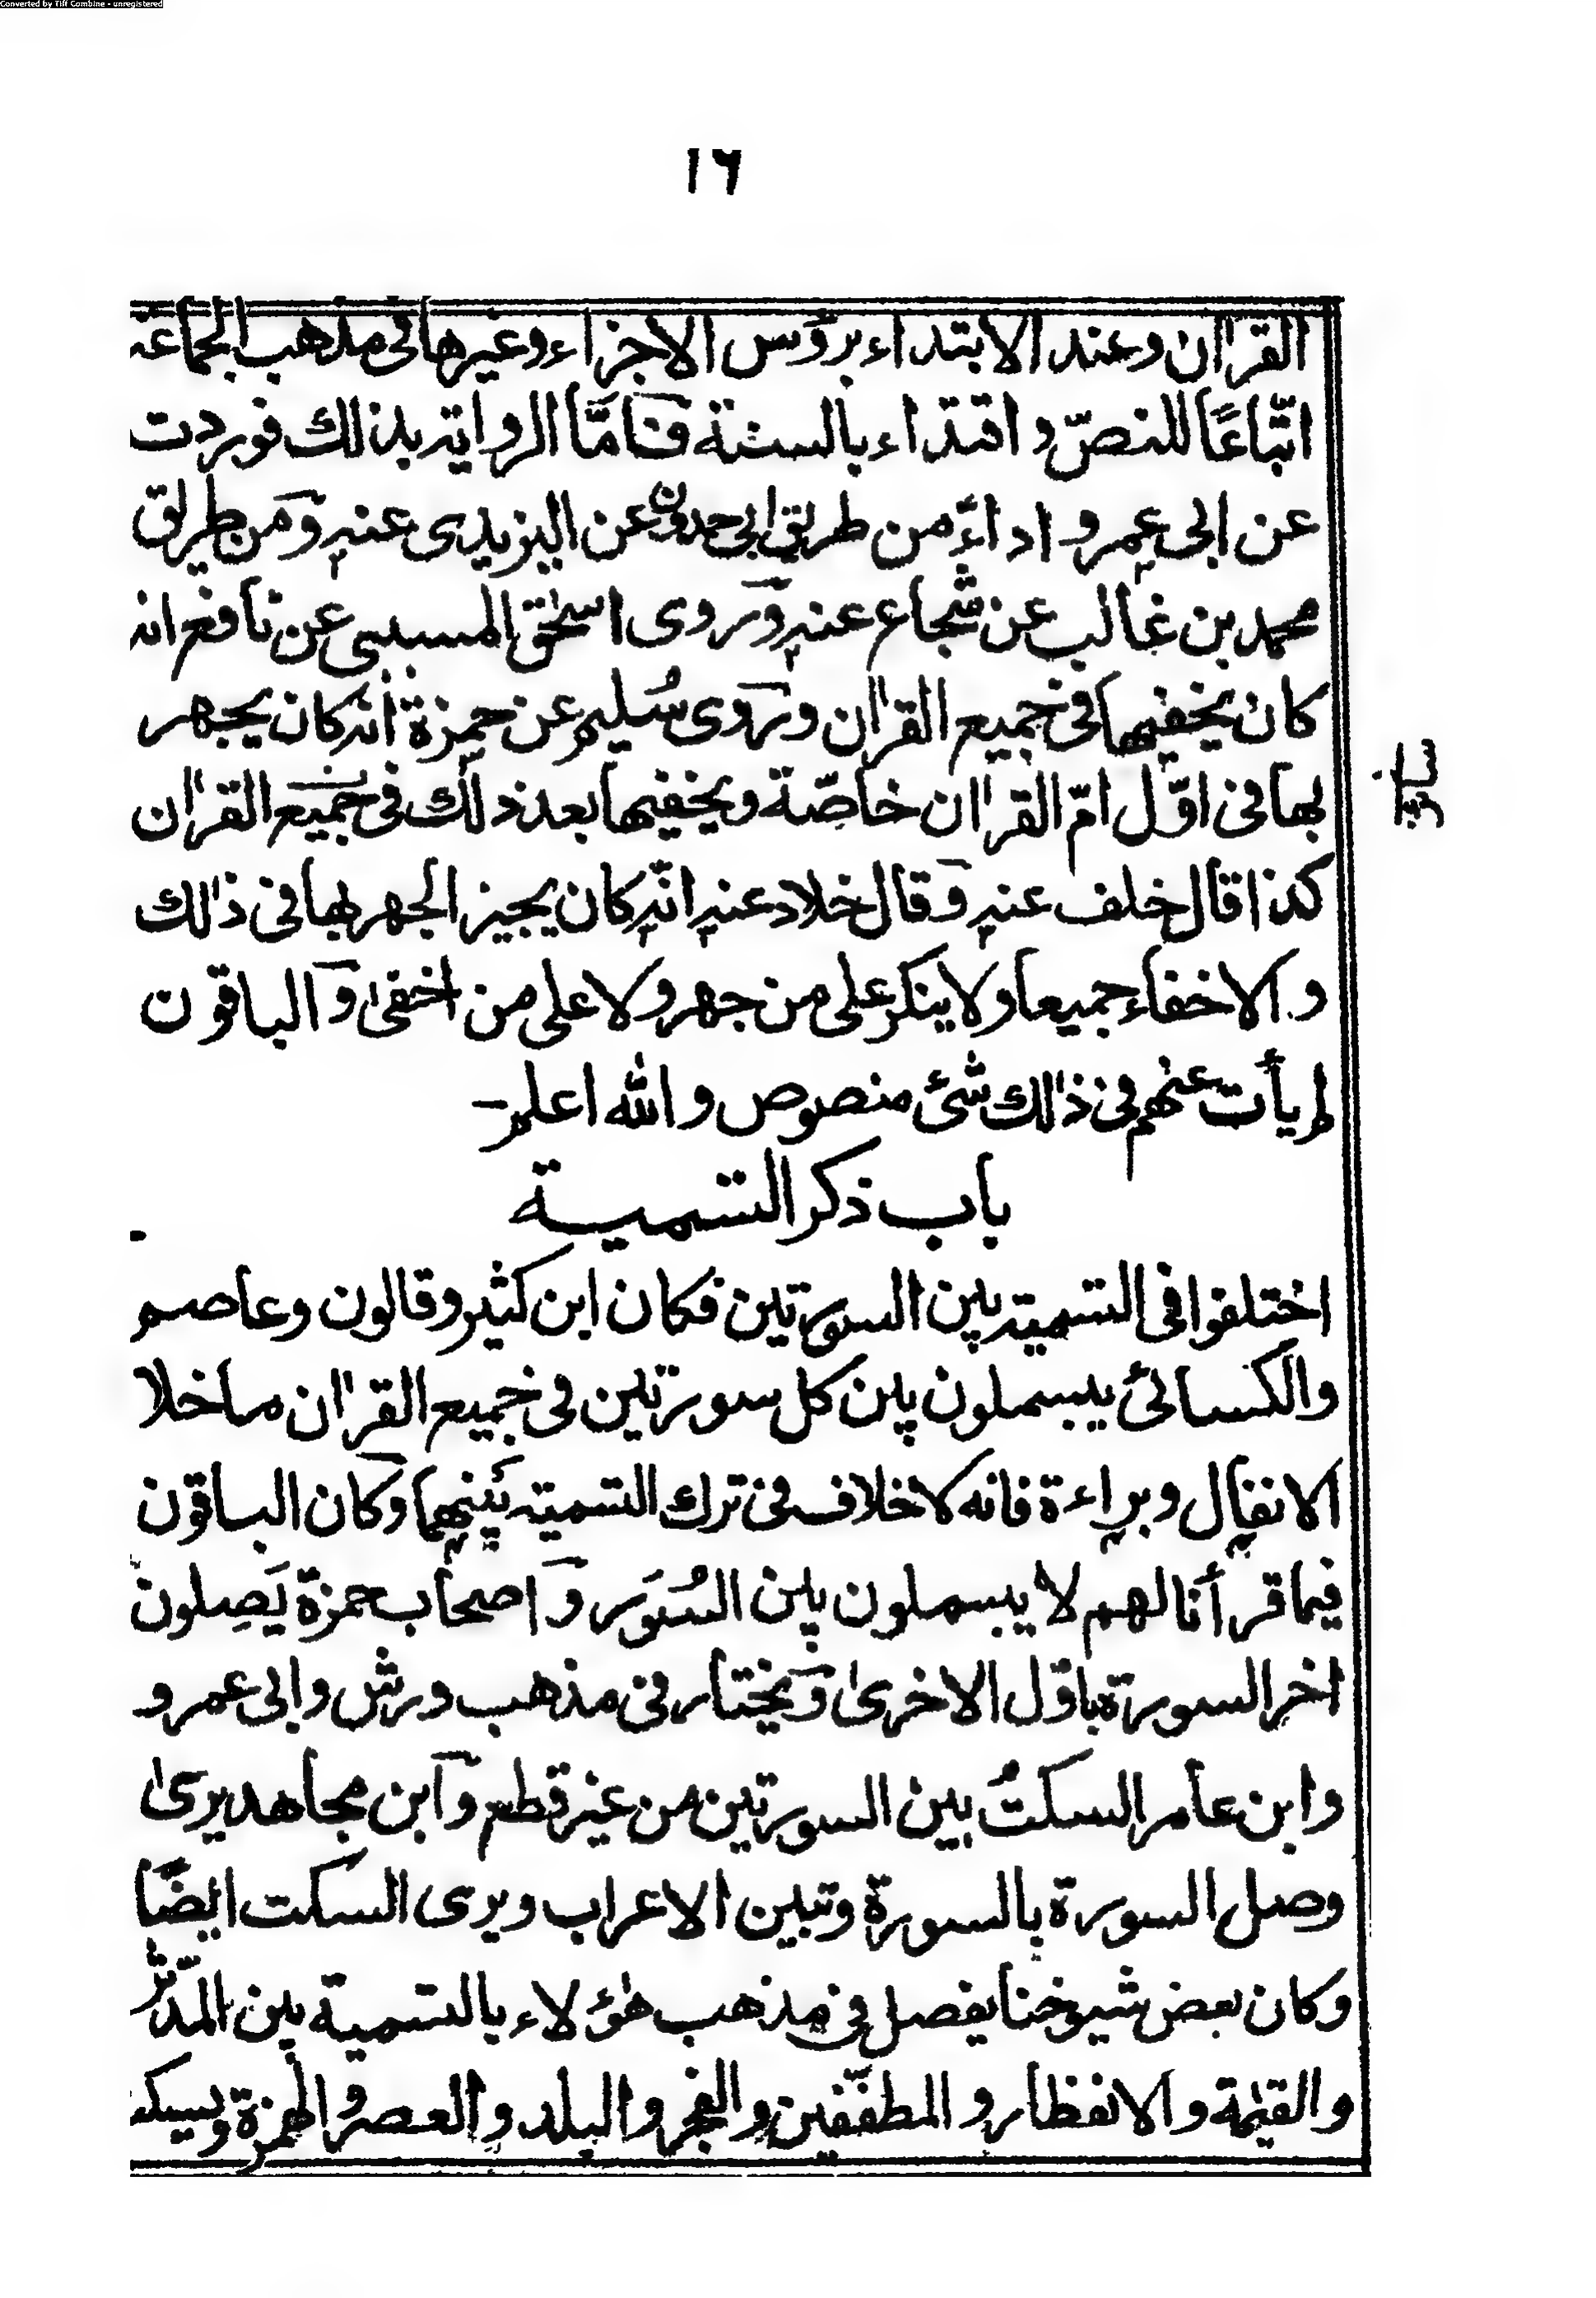 Converted by Tiff Combine - unregistered
١٦
القراٰن وعند الابتداء برؤس الاجزاء وغيرها فى مذهب الجماعة
اتّباعًا للنصّ و اقتداء بالسنة فَامَّا الرواية بذلك فوردت
عن ابى عمرو اداءً من طريق ابى حمدون عن اليزيدى عنه وَمن طريق
محمد بن غالب عن شجاع عنه وَروى اسحٰق المسيبى عن نافع انه
كان يخفيها فى جميع القراٰن وَروى سُليم عن حمزة انه كان يجهر
بها فى اوّل امّ القراٰن خاصّة ويخفيها بعد ذٰلك فى جميع القراٰن
كذا قال خلف عنه وَقال خلاد عنه انّه كان يجيز الجهر بها فى ذٰلك
و الاخفاء جميعا ولا ينكر على من جهر ولا على من اخفىٰ وَالباقون
لم يأت عنهم فى ذٰلك شئ منصوص والله اعلم-
باب ذكر التسمية
اختلفوا فى التسمية بين السورتين فكان ابن كثير وقالون وعاصم
والكسائى يبسملون بين كل سورتين فى جميع القراٰن ما خلا
الانفال وبراءة فانه لاخلاف فى ترك التسمية بينهما وَكان الباقون
فيما قرأنا لهم لا يبسملون بين السُوَر وَاصحاب حمزة يَصِلون
اخر السورة باوّل الاخرىٰ وَيختار فى مذهب ورش وابى عمرو
وابن عامر السكتُ بين السورتين من غير قطع وَابن مجاهد يرىٰ
وصل السورة بالسورة وتبين الاعراب ويرى السكت ايضًا
وكان بعض شيوخنا يفصل فى مذهب هٰؤلاء بالتسمية بين المدّثر
والقيٰمة والانفطار و المطفّفين والفجر والبلد والعصر والهمزة ويسكت